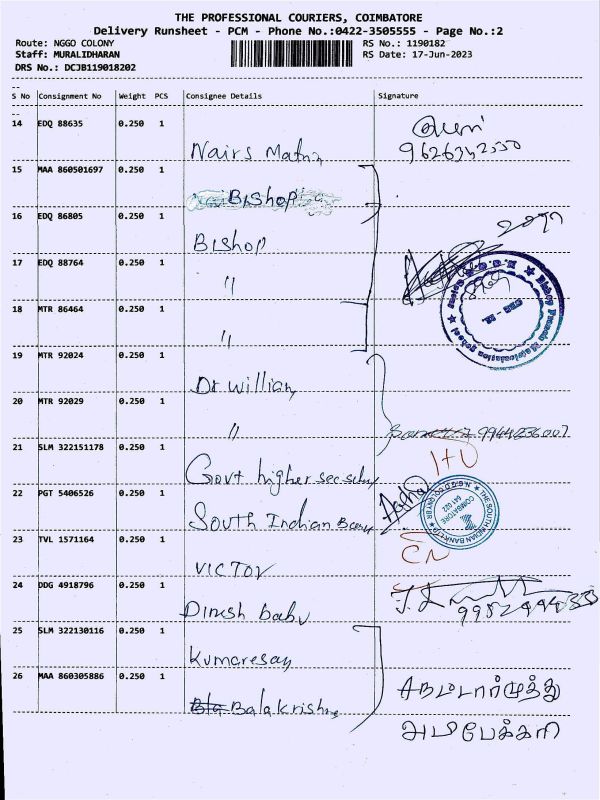 THE PROFESSIONAL COURIERS, COIMBATORE
Delivery Runsheet - PCM - Phone No.:0422-3505555 - Page No.:2
Route: NGGO COLONY RS No.: 1190182
Staff: MURALIDHARAN RS Date: 17-Jun-2023
DRS No.: DCJB119018202
S No Consignment No Weight PCS Consignee Details Signature
14 EDQ 88635 0.250 1
Nairs
15 MAA 860501697 0.250 1
Bishop
16 EDQ 86805 0.250 1
Bishop
17 EDQ 88764 0.250 1
"
18 MTR 86464 0.250 1
"
19 MTR 92024 0.250 1
Dr William
20 MTR 92029 0.250 1
" 9944836007
21 SLM 322151178 0.250 1
Govt higher sec
22 PGT 5406526 0.250 1
South Indian Bank
THE SOUTH INDIAN BANK LTD
COIMBATORE
641 022
23 TVL 1571164 0.250 1
VICTOR
24 DDG 4918796 0.250 1
Dinesh babu
25 SLM 322130116 0.250 1
Kumaresan
26 MAA 860305886 0.250 1
Balakrishna